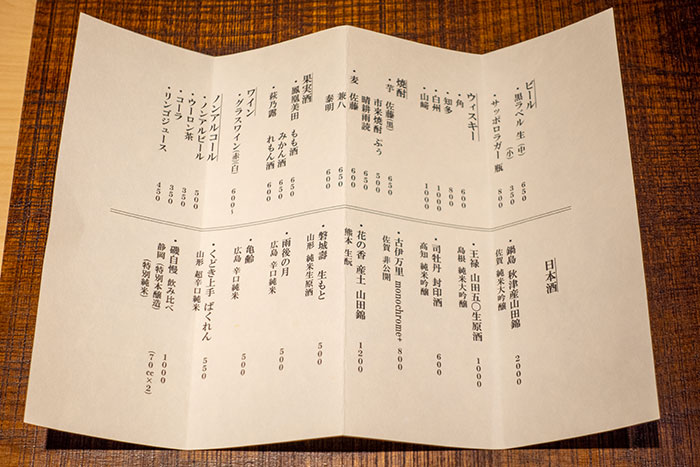 ビール
・黒ラベル 生 (中) 650
(小) 350
・サッポロラガー 瓶 800
ウィスキー
・角 600
・知多 800
・白州 1000
・山崎 1000
焼酎
・芋 佐藤(黒) 650
市来焼酎 ぷぅ 500
晴耕雨読 650
・麦 佐藤 600
兼八 600
泰明 600
果実酒
・鳳凰美田 もも酒 650
みかん酒 650
・萩乃露 れもん酒 600
ワイン
・グラスワイン(赤・白) 600~
ノンアルコール
・ノンアルビール 500
・ウーロン茶 350
・コーラ 350
・リンゴジュース 450
日本酒
・鍋島 秋津産山田錦 2000
佐賀 純米大吟醸
・王禄 山田五〇生原酒 1000
島根 純米大吟醸
・司牡丹 封印酒 600
高知 純米吟醸
・古伊万里 monochrome+ 800
佐賀 非公開
・花の香 産土 山田錦 1200
熊本 生酛
・磐城壽 生もと 500
山形 純米生原酒
・雨後の月 500
広島 辛口純米
・亀齢 500
広島 辛口純米
・くどき上手 ばくれん 550
山形 超辛口純米
・磯自慢 飲み比べ 1000
静岡 (特別本醸造) (70cc×2)
(特別純米)